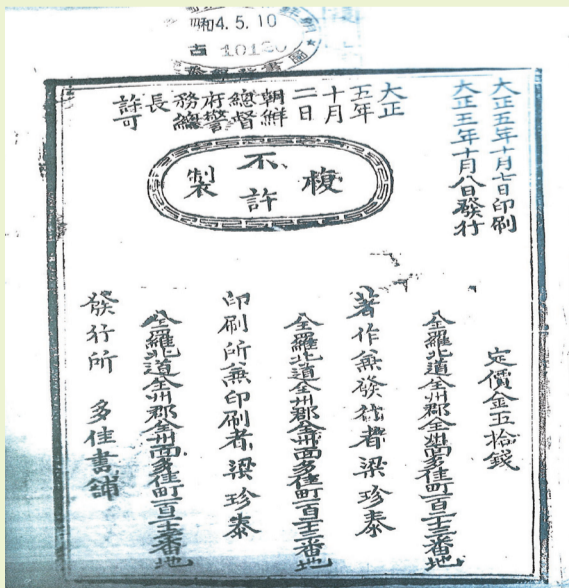 昭和4.5.10
大正五年十月七日印刷
大正五年十月八日發行
大正
五年
十月
二日
朝鮮
總督
府警
務總
長
許可
不許
複製
定價金五拾錢
全羅北道全州郡全州面多佳町一百二十三番地
著作兼發行者 梁珍泰
全羅北道全州郡全州面多佳町一百二十三番地
印刷所兼印刷者 梁珍泰
全羅北道全州郡全州面多佳町一百二十三番地
發行所 多佳書鋪